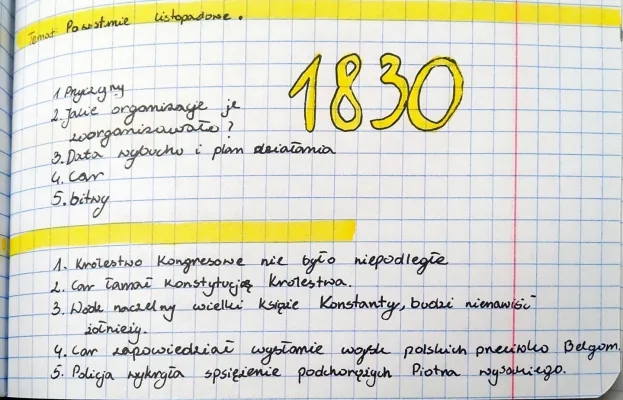 Temat: Powstanie listopadowe.
1830
1. Przyczyny
2. Jakie organizacje je
zorganizowało?
3. Data wybuchu i plan działania
4. Car
5. bitwy
1. Królestwo Kongresowe nie było niepodległe
2. Car łamał konstytucję Królestwa.
3. Wódz naczelny wielki książe Konstanty, budzi nienawiść
żołnieży.
4. Car zapowiedział wysłanie wojsk polskich przeciwko Belgom.
5. Policja wykryła spsiężenie podchorążych Piotra wysockiego.